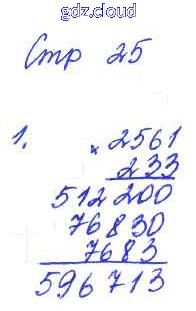 gdz.cloud
Стр 25
1. × 2561
233
512200
76830
7683
596713